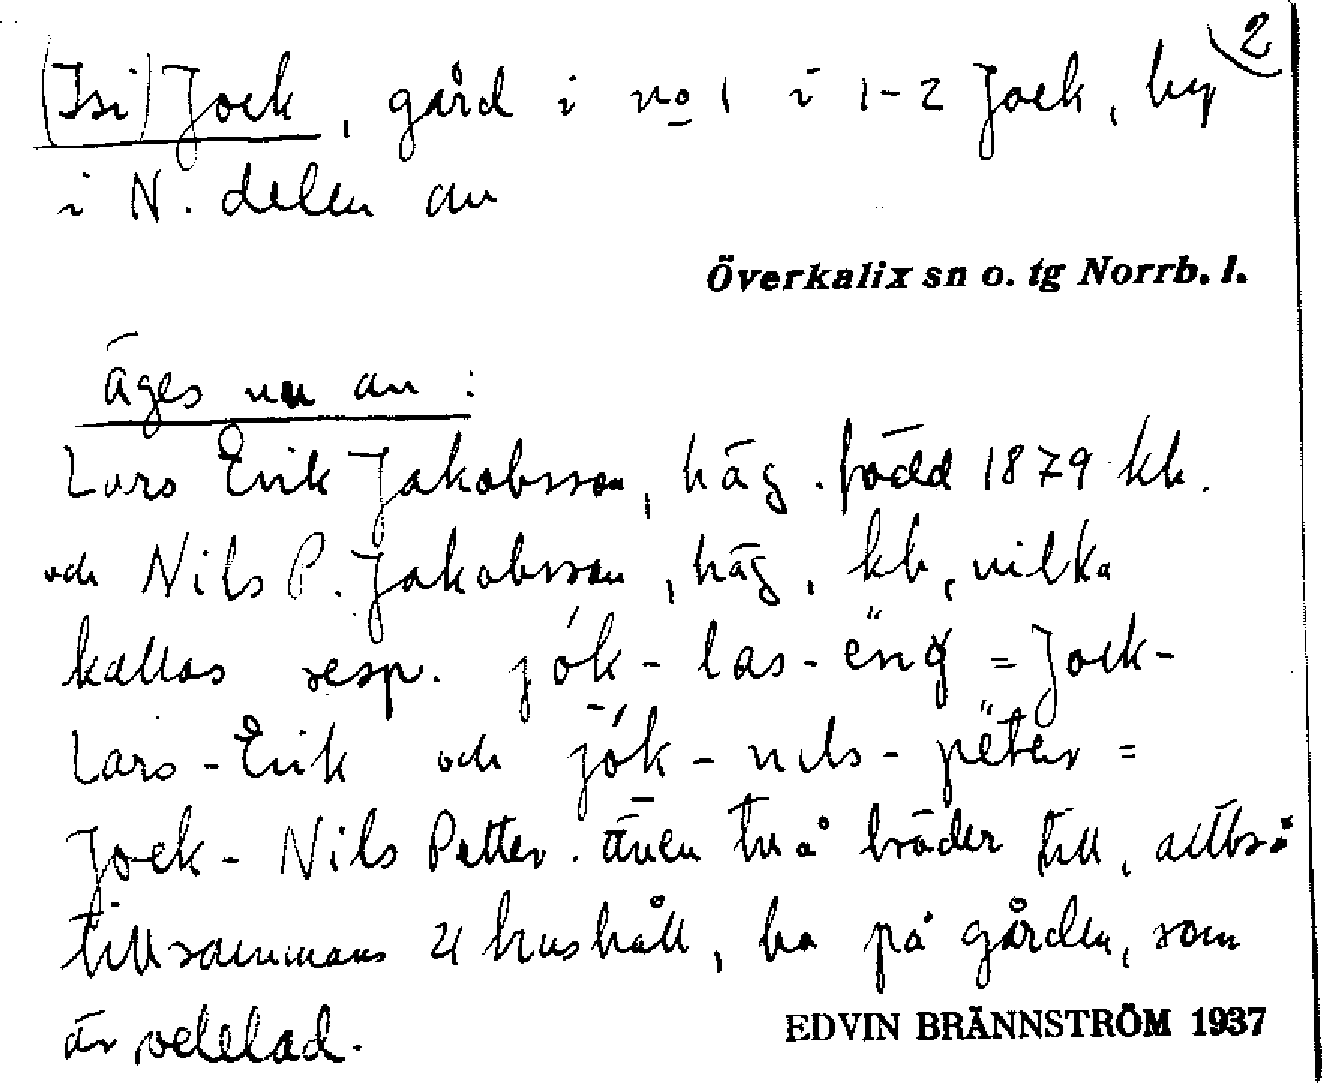 2
(Isi) Jock, gård i no 1 i 1-2 Jock, by
i N. delen av
Överkalix sn o. tg Norrb. l.
äges nu av:
Lars Erik Jakobsson, häg. född 1879 kb.
och Nils P. Jakobsson, häg, kb, vilka
kallas resp. jók-las-ëŋ = Jock-
Lars-Erik och jók-nils-pëter =
Jock-Nils Petter. även två bröder till, alltså
tillsammans 4 hushåll, bo på gården, som
är odelad.
EDVIN BRÄNNSTRÖM 1937